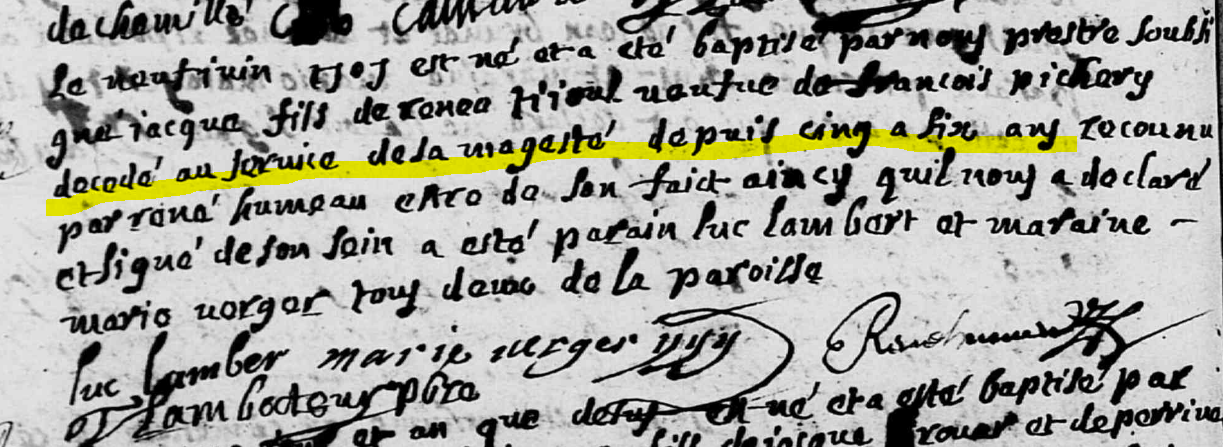 de chemillé
Le neuf iuin 1705 est né et a eté baptisé par nous prestre soubsi
gné iacque fils de renee veufue de francois pichery
decedé au seruice de sa magesté depuis cinq a six ans reconnu
par rené humeau estre de son faict aincy quil nous a declaré
et signé de son sein a esté parain luc lambert et maraine -
marie uerger tous deux de la paroisse
luc lamber marie uerger René humeau
ptre
et an que desus est né et a esté baptisé par
fils de iacque et de perrine